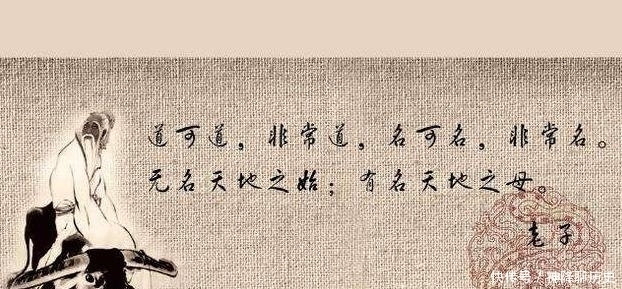 道可道，非常道，名可名，非常名。
无名天地之始；有名天地之母。
老子
快传号/神绎聊历史